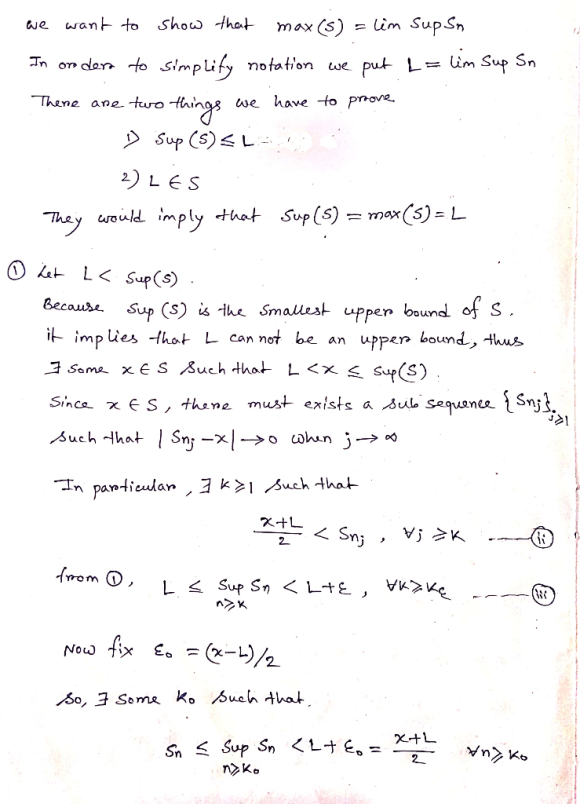 we want to show that max(S) = lim Sup Sn
In order to simplify notation we put L = lim Sup Sn
There are two things we have to prove
1) Sup (S) ≤ L
2) L ∈ S
They would imply that Sup(S) = max(S) = L
① Let L < Sup(S).
Because Sup (S) is the smallest upper bound of S.
it implies that L can not be an upper bound, thus
∃ some x ∈ S such that L < x ≤ Sup(S)
Since x ∈ S, there must exists a sub sequence {Snj}j≥1
such that |Snj - x| → 0 when j → ∞
In particular, ∃ k ≥ 1 such that
x+L/2 < Snj, ∀j ≥ K --- (ii)
from ①, L ≤ Sup Sn < L+ε, ∀K ≥ Kε --- (iii)
n≥K
Now fix ε₀ = (x-L)/2
so, ∃ some K₀ such that.
Sn ≤ Sup Sn < L + ε₀ = x+L/2 ∀n ≥ K₀
n≥K₀